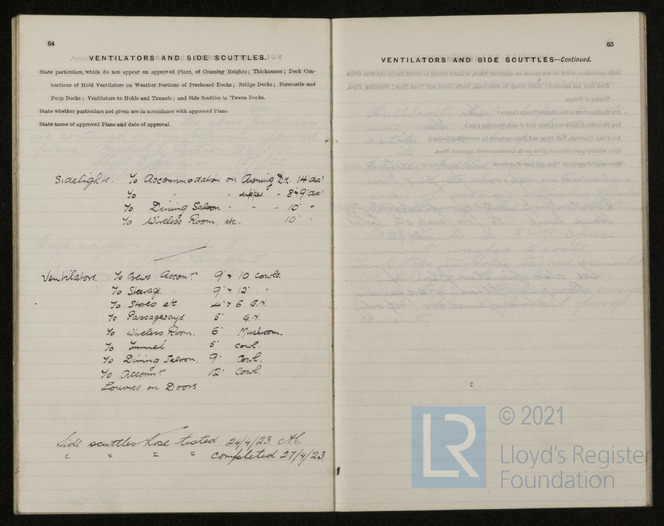 64
VENTILATORS AND SIDE SCUTTLES.
State particulars, which do not appear on approved Plans, of Coaming Heights; Thicknesses; Deck Con-
nections of Hold Ventilators on Weather Portions of Freeboard Decks; Bridge Decks; Forecastle and
Poop Decks; Ventilators to Holds and Tunnels; and Side Scuttles in 'Tween Decks.
State whether particulars not given are in accordance with approved Plans.
State name of approved Plans and date of approval.
Sidelights. To Accommodation on Awning Dk. 14" dia!
To " upper " 8 & 9" dia!
To Dining Saloon " " 10" "
To Wireless Room. etc. 10" "
Ventilators. To Crews Accomn 9" & 10 Cowls.
To Steerage. 9" & 12" "
To Stores etc 4" & 6 G.N.
To Passageways 5" G.N.
To Wireless Room. 6" Mushroom.
To Tunnel 5" Cowl
To Dining Saloon. 9" Cowl.
To Accomn 12" Cowl.
Louvres on Doors.
Side scuttles hose tested 24/4/23
" " " " completed 27/4/23
65
VENTILATORS AND SIDE SCUTTLES—Continued.
LR
© 2021
Lloyd's Register
Foundation